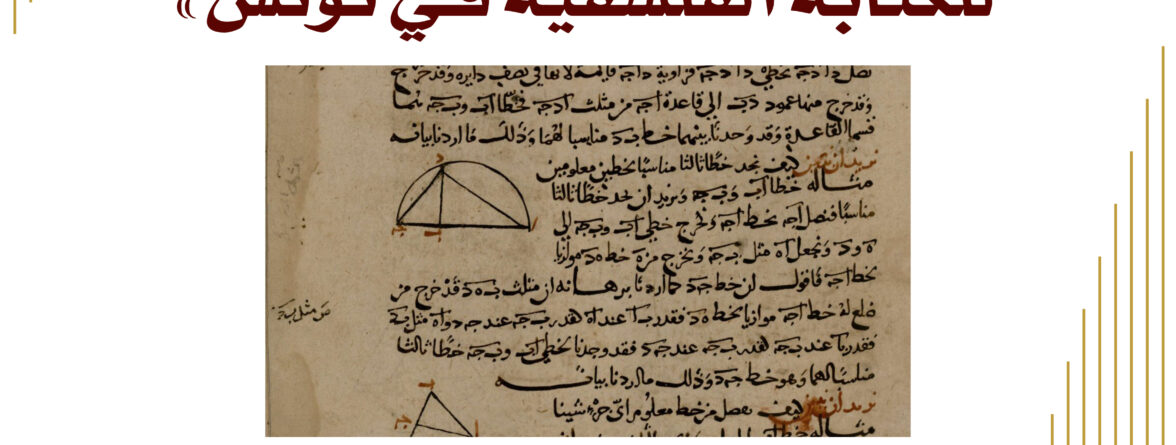 للكتابة الفلسفية في تونس»
نصل دا دجه بخطي دا دجه فزاوية داجه قايمة لانها في نصف دايره وقد خرج
وقد خرج منها عمود دب الي قاعدة اجه من مثلث ادجه فخطا اب وبجه هما
قسما القاعدة وقد وجدنا بينهما خط بد مناسبا لهما وذلك ما اردنا بيانه
نريد ان نبين كيف نجد خطا ثالثا مناسبا لخطين معلومين
مثاله خطا اب وبجه ونريد ان نجد خطا ثالثا
مناسبا فنصل اجه بخط اجه ونخرج خطي اب وبجه الي
ه ود ونجعل اه مثل بجه ونخرج من ه خط هد موازيا
لخط اجه فاقول ان خط جد ما اردنا برهانه ان مثلث به د قد خرج من
ضلع له خط اجه موازيا لخط هد فقدر با عند اه كقدر بجه عند جد واه مثل بجه
فقدر با عند بجه كقدر بجه عند جد فقد وجدنا لخطي اب وبجه خطا ثالثا
مناسبا لهما وهو خط جد وذلك ما اردنا بيانه
نريد ان نبين كيف نفصل من خط معلوم اي جزء شينا
مثاله خط اب
ص مثل بجه